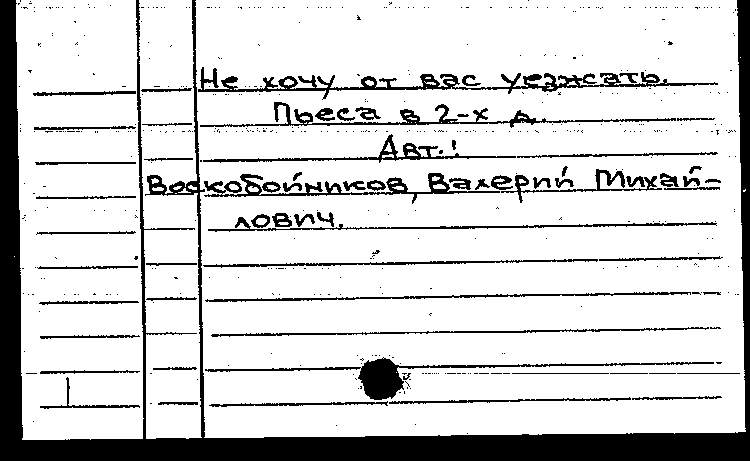 Не хочу от вас уезжать.
Пьеса в 2-х д.
Авт.:
Воскобойников, Валерий Михай-
лович.